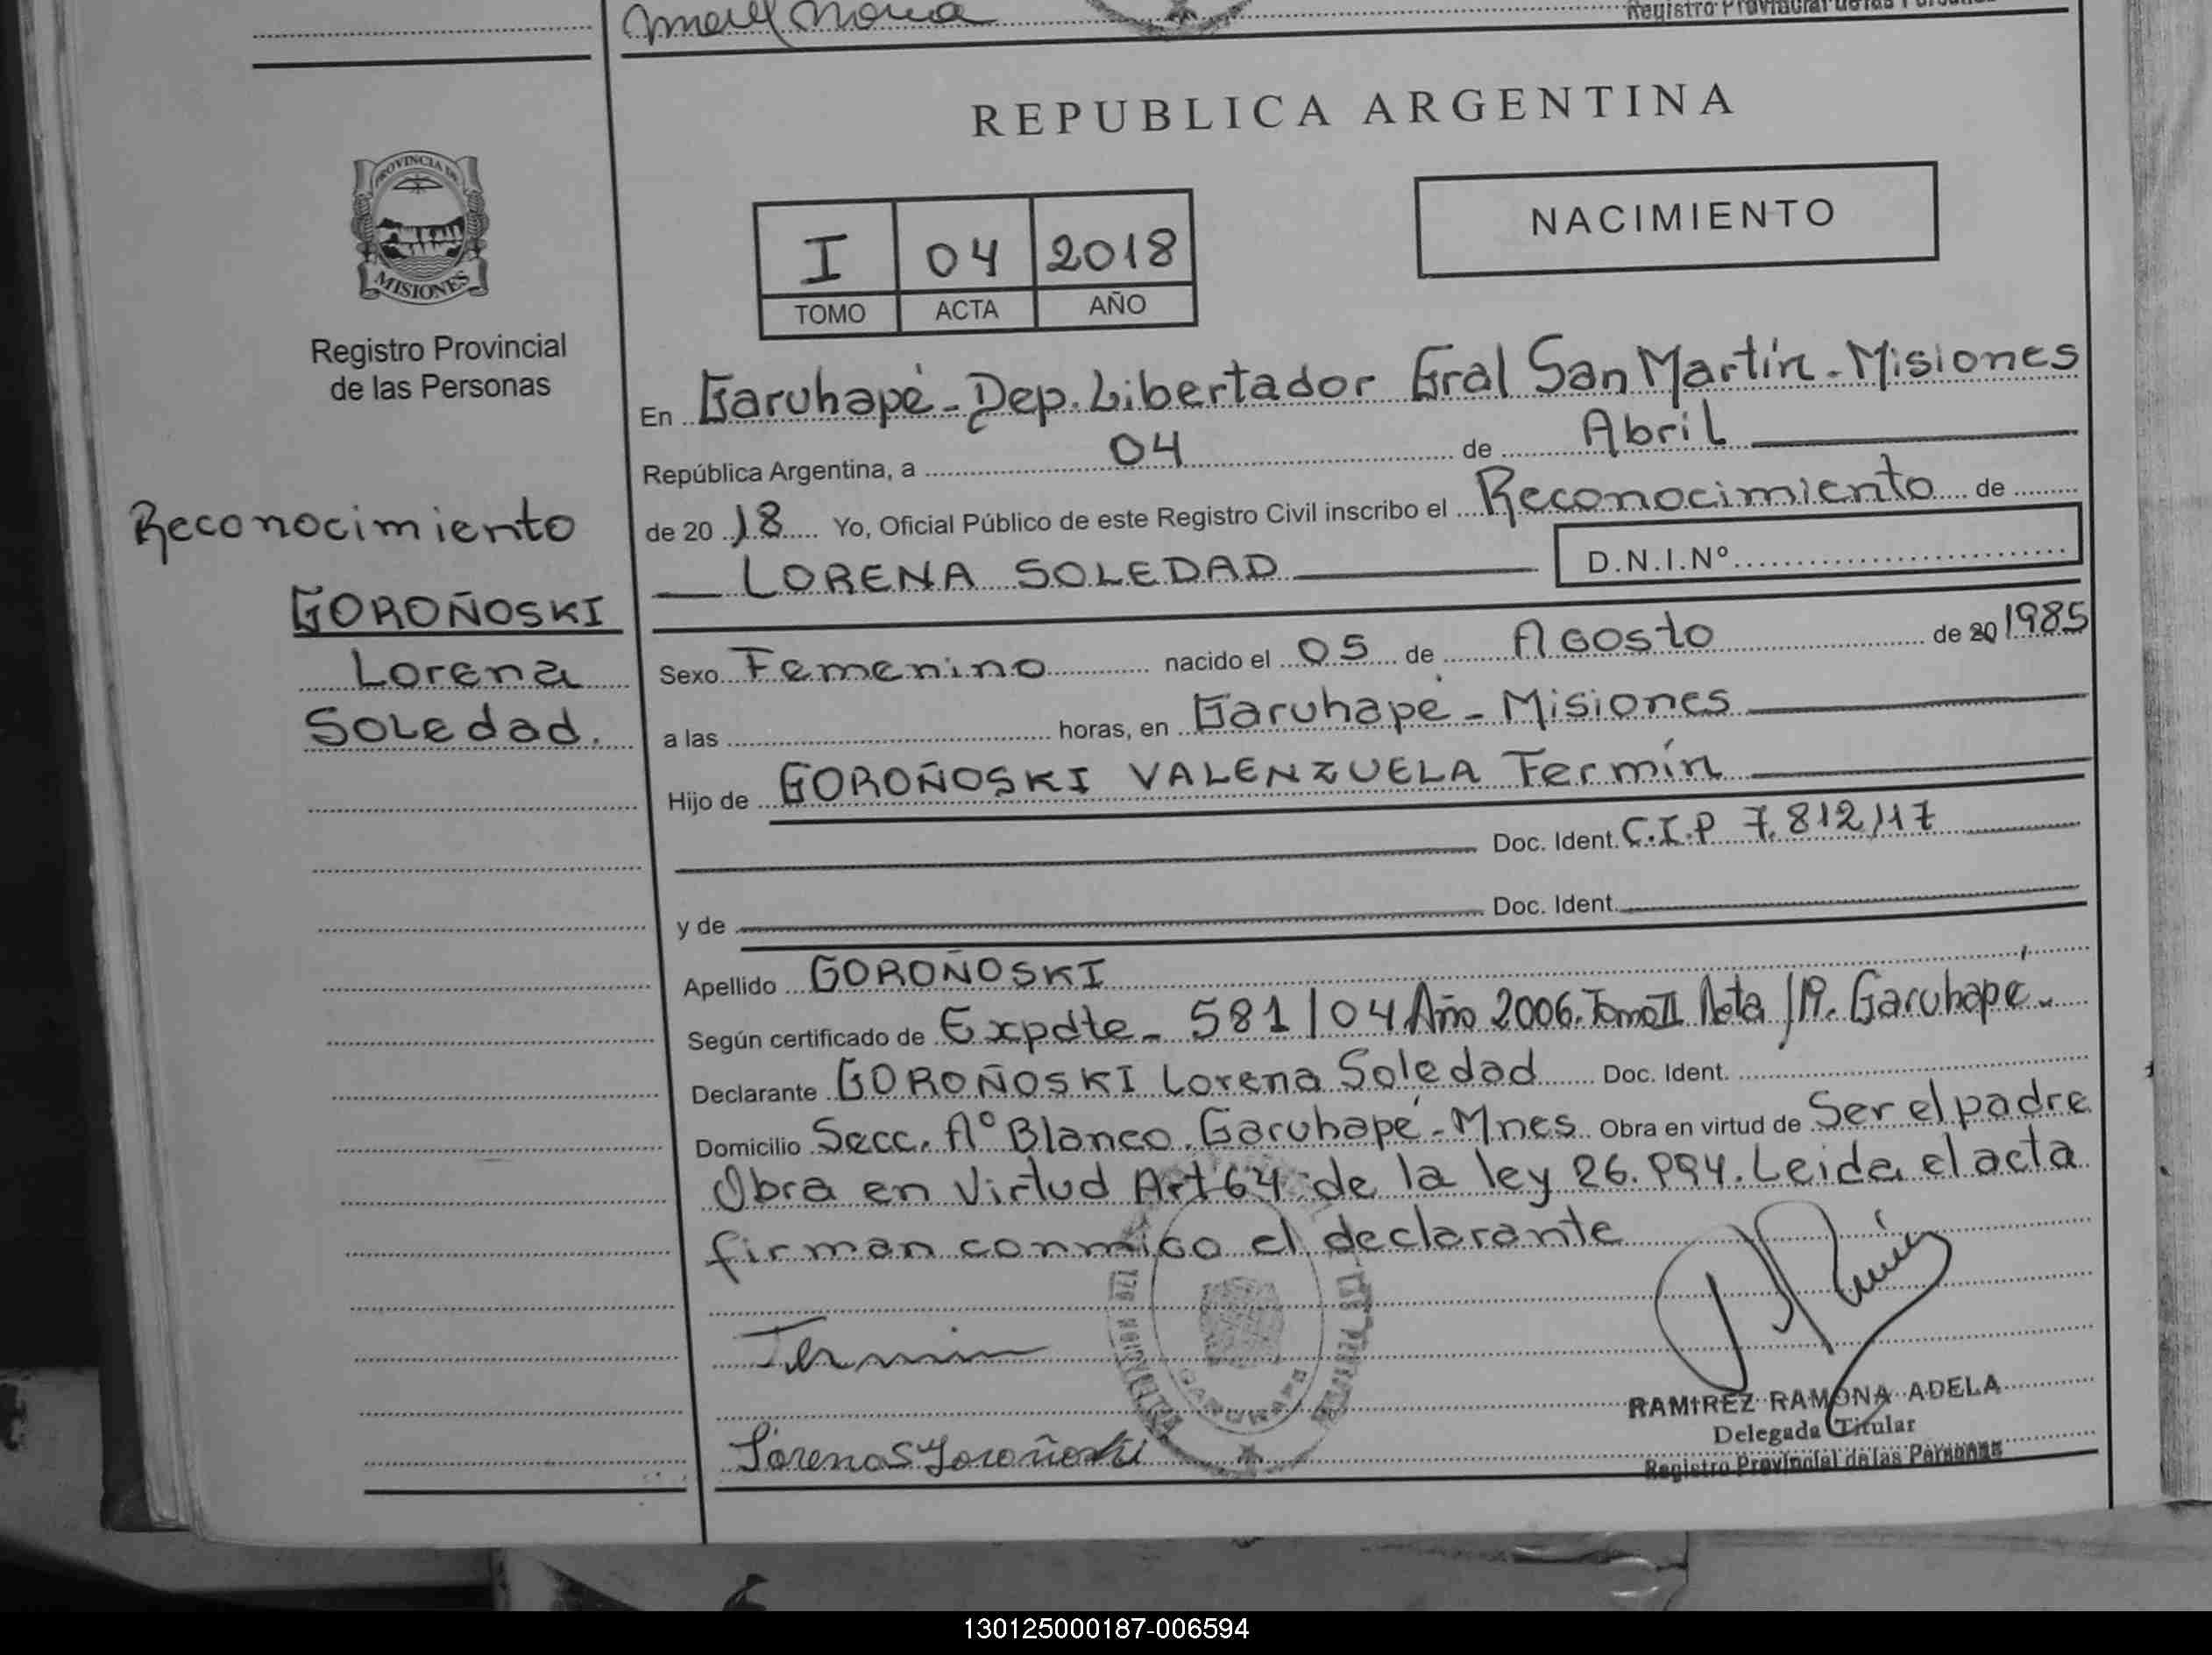 Registro Provincial de las Personas
REPUBLICA ARGENTINA
PROVINCIA DE
MISIONES
Registro Provincial
de las Personas
NACIMIENTO
I 04 2018
TOMO ACTA AÑO
En Garuhapé - Dep. Libertador Gral San Martín - Misiones
República Argentina, a 04 de Abril
de 20 18 Yo, Oficial Público de este Registro Civil inscribo el Reconocimiento de
LORENA SOLEDAD D.N.I.Nº
Reconocimiento
GOROÑOSKI
Lorena
Soledad.
Sexo Femenino nacido el 05 de Agosto de 20 1985
a las horas, en Garuhapé - Misiones
Hijo de GOROÑOSKI VALENZUELA Fermín
Doc. Ident. C.I.P 7.812/17
y de Doc. Ident.
Apellido GOROÑOSKI
Según certificado de Expdte - 581/04 Año 2006. Tomo II Acta 119. Garuhapé -
Declarante GOROÑOSKI Lorena Soledad Doc. Ident.
Domicilio Secc. Aº Blanco. Garuhapé - Mnes Obra en virtud de Ser el padre
Obra en Virtud Art 64 de la ley 26.994. Leida el acta
firman conmigo el declarante
Fermin
Lorena S Goroñoski
GARUHAPE
RAMIREZ RAMONA ADELA
Delegada Titular
Registro Provincial de las Personas
130125000187-006594